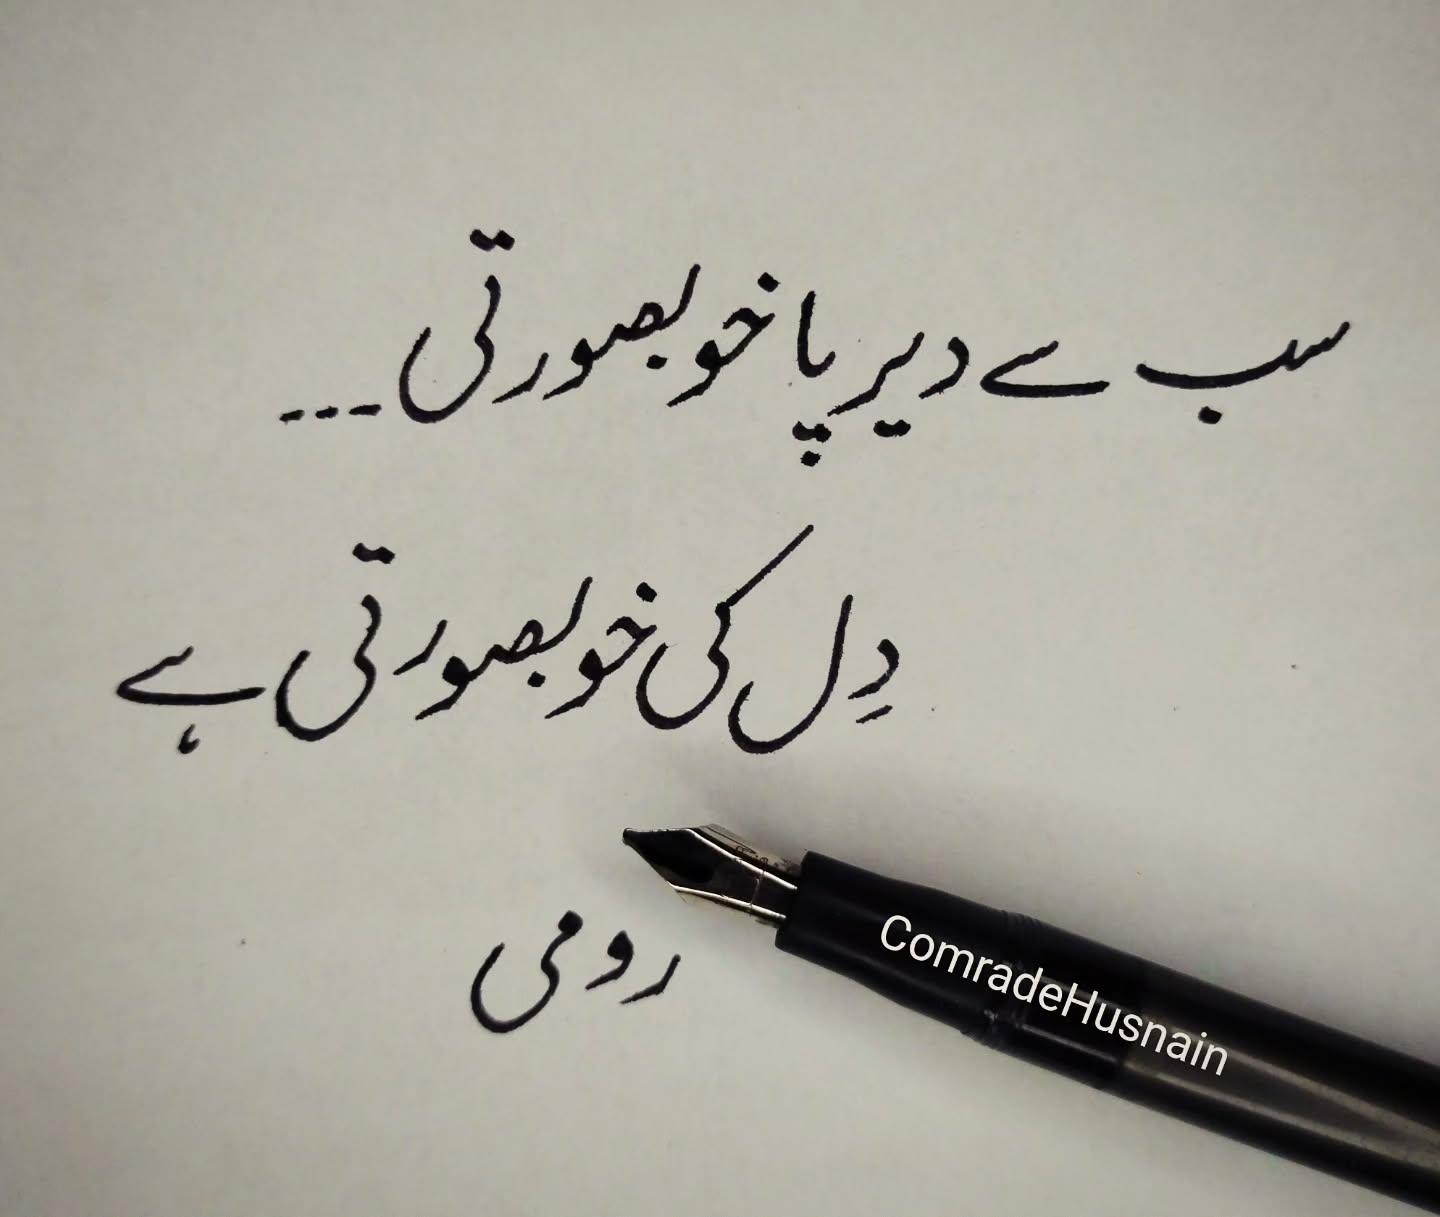 سب سے دیر پا خوبصورتی...
دِل کی خوبصورتی ہے
رومی
ComradeHusnain